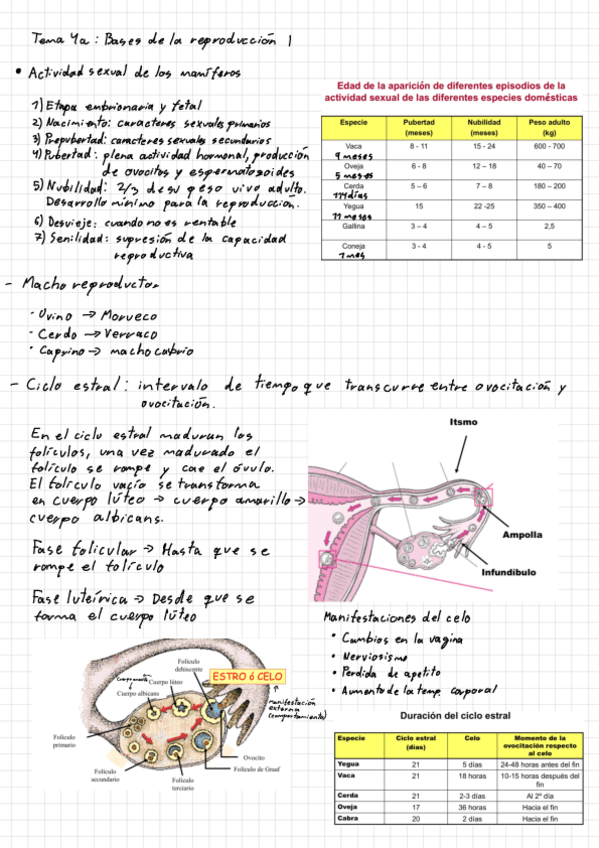 Tema 4a: Bases de la reproducción 1
• Actividad sexual de los mamíferos
1) Etapa embrionaria y fetal
2) Nacimiento: caracteres sexuales primarios
3) Prepubertad: caracteres sexuales secundarios
4) Pubertad: plena actividad hormonal, producción
de ovocitos y espermatozoides
5) Nubilidad: 2/3 de su peso vivo adulto.
Desarrollo mínimo para la reproducción.
6) Desvieje: cuando no es rentable
7) Senilidad: supresión de la capacidad
reproductiva
Edad de la aparición de diferentes episodios de la
actividad sexual de las diferentes especies domésticas
Especie Pubertad (meses) Nubilidad (meses) Peso adulto (kg)
Vaca 8 - 11 15 - 24 600 - 700
9 meses
Oveja 6 - 8 12 – 18 40 – 70
5 meses
Cerda 5 – 6 7 – 8 180 – 200
114 días
Yegua 15 22 -25 350 – 400
11 meses
Gallina 3 – 4 4 – 5 2,5
Coneja 3 - 4 4 - 5 5
1 mes
- Macho reproductor
· Ovino → Morueco
· Cerdo → Verraco
· Caprino → macho cabrío
- Ciclo estral: intervalo de tiempo que transcurre entre ovocitación y
ovocitación.
En el ciclo estral maduran los
folículos, una vez madurado el
folículo se rompe y cae el óvulo.
El folículo vacío se transforma
en cuerpo lúteo → cuerpo amarillo →
cuerpo albicans.
Fase folicular → Hasta que se
rompe el folículo
Fase luteínica → Desde que se
forma el cuerpo lúteo
Itsmo
Ampolla
Infundíbulo
Manifestaciones del celo
• Cambios en la vagina
• Nerviosismo
• Perdida de apetito
• Aumento de la temp. corporal
Folículo
dehiscente
ESTRO ó CELO
Cuerpo lúteo
Cuerpo albicans
manifestación
externa
(comportamiento)
Folículo
primario
Ovocito
Folículo de Graaf
Folículo
secundario
Folículo
terciario
Duración del ciclo estral
Especie Ciclo estral (días) Celo Momento de la ovocitación respecto al celo
Yegua 21 5 días 24-48 horas antes del fin
Vaca 21 18 horas 10-15 horas después del fin
Cerda 21 2-3 días Al 2º día
Oveja 17 36 horas Hacia el fin
Cabra 20 2 días Hacia el fin